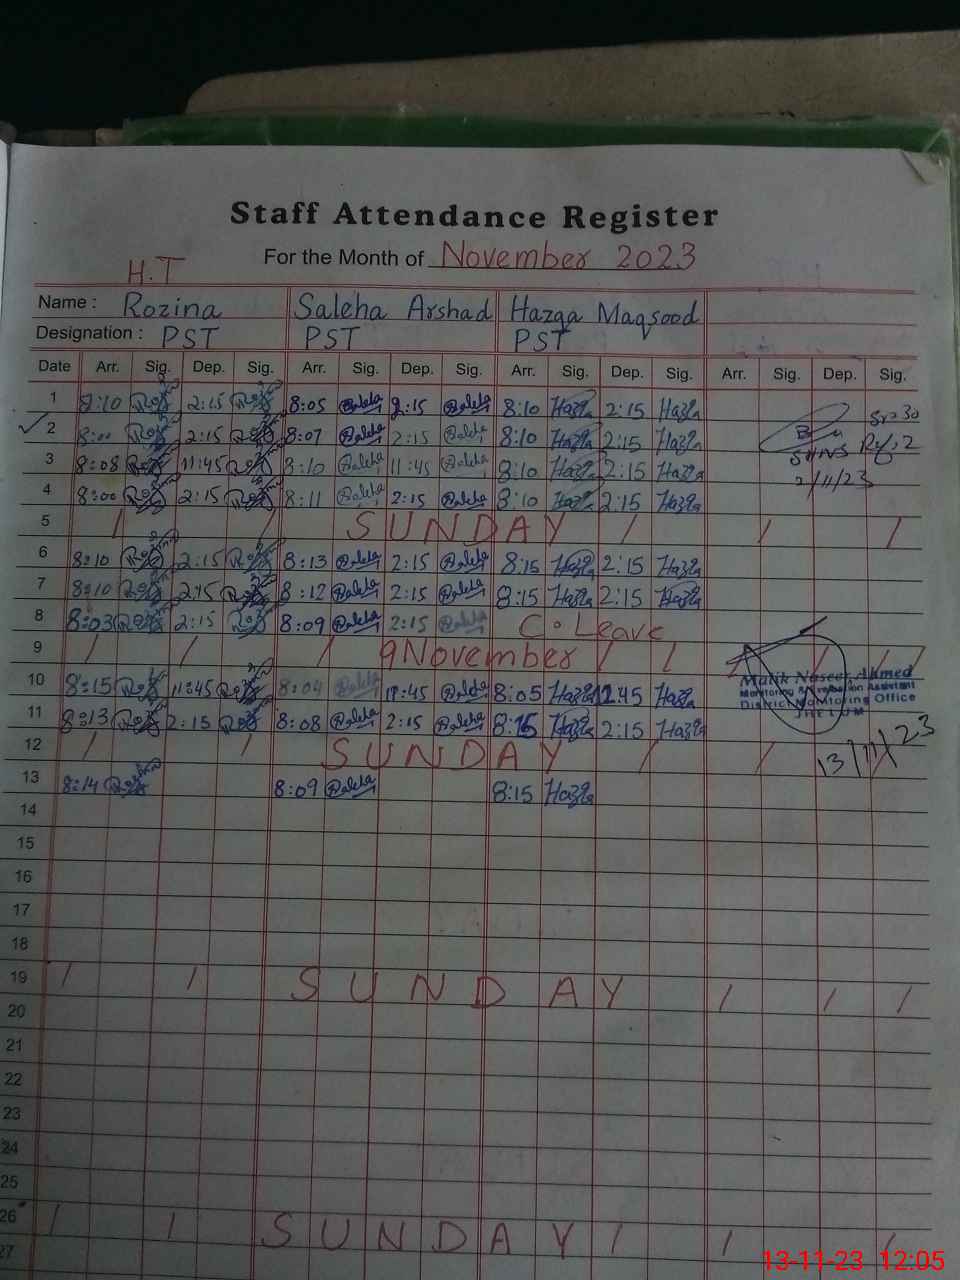 Staff Attendance Register
For the Month of November 2023
H.T
Name : Rozina Saleha Arshad Hazqa Maqsood
Designation : PST PST PST
Date Arr. Sig. Dep. Sig. Arr. Sig. Dep. Sig. Arr. Sig. Dep. Sig. Arr. Sig. Dep. Sig.
1 8:10 2:15 8:05 Saleha 2:15 Saleha 8:10 Hazqa 2:15 Hazqa
2 2:15 8:07 Saleha 2:15 Saleha 8:10 Hazqa 2:15 Hazqa
3 8:08 11:45 8:10 Saleha 11:45 Saleha 8:10 Hazqa 2:15 Hazqa
2/11/23
4 8:00 2:15 8:11 Saleha 2:15 Saleha 8:10 Hazqa 2:15 Hazqa
5 SUNDAY
6 8:10 2:15 8:13 Saleha 2:15 Saleha 8:15 Hazqa 2:15 Hazqa
7 8:10 8:12 Saleha 2:15 Saleha 8:15 Hazqa 2:15 Hazqa
8 8:03 2:15 8:09 Saleha 2:15 Saleha C. Leave
9 9 November
10 8:15 11:45 8:04 Saleha 11:45 Saleha 8:05 Hazqa Hazqa
11 8:13 2:15 8:08 Saleha 2:15 Saleha Hazqa 2:15 Hazqa
Malik Naseer Ahmed
Monitoring & Evaluation Assistant
District Monitoring Office
JHELUM
13/11/23
12 SUNDAY
13 8:14 8:09 Saleha 8:15 Hazqa
14
15
16
17
18
19 SUNDAY
20
21
22
23
24
25
26 SUNDAY
27
13-11-23 12:05